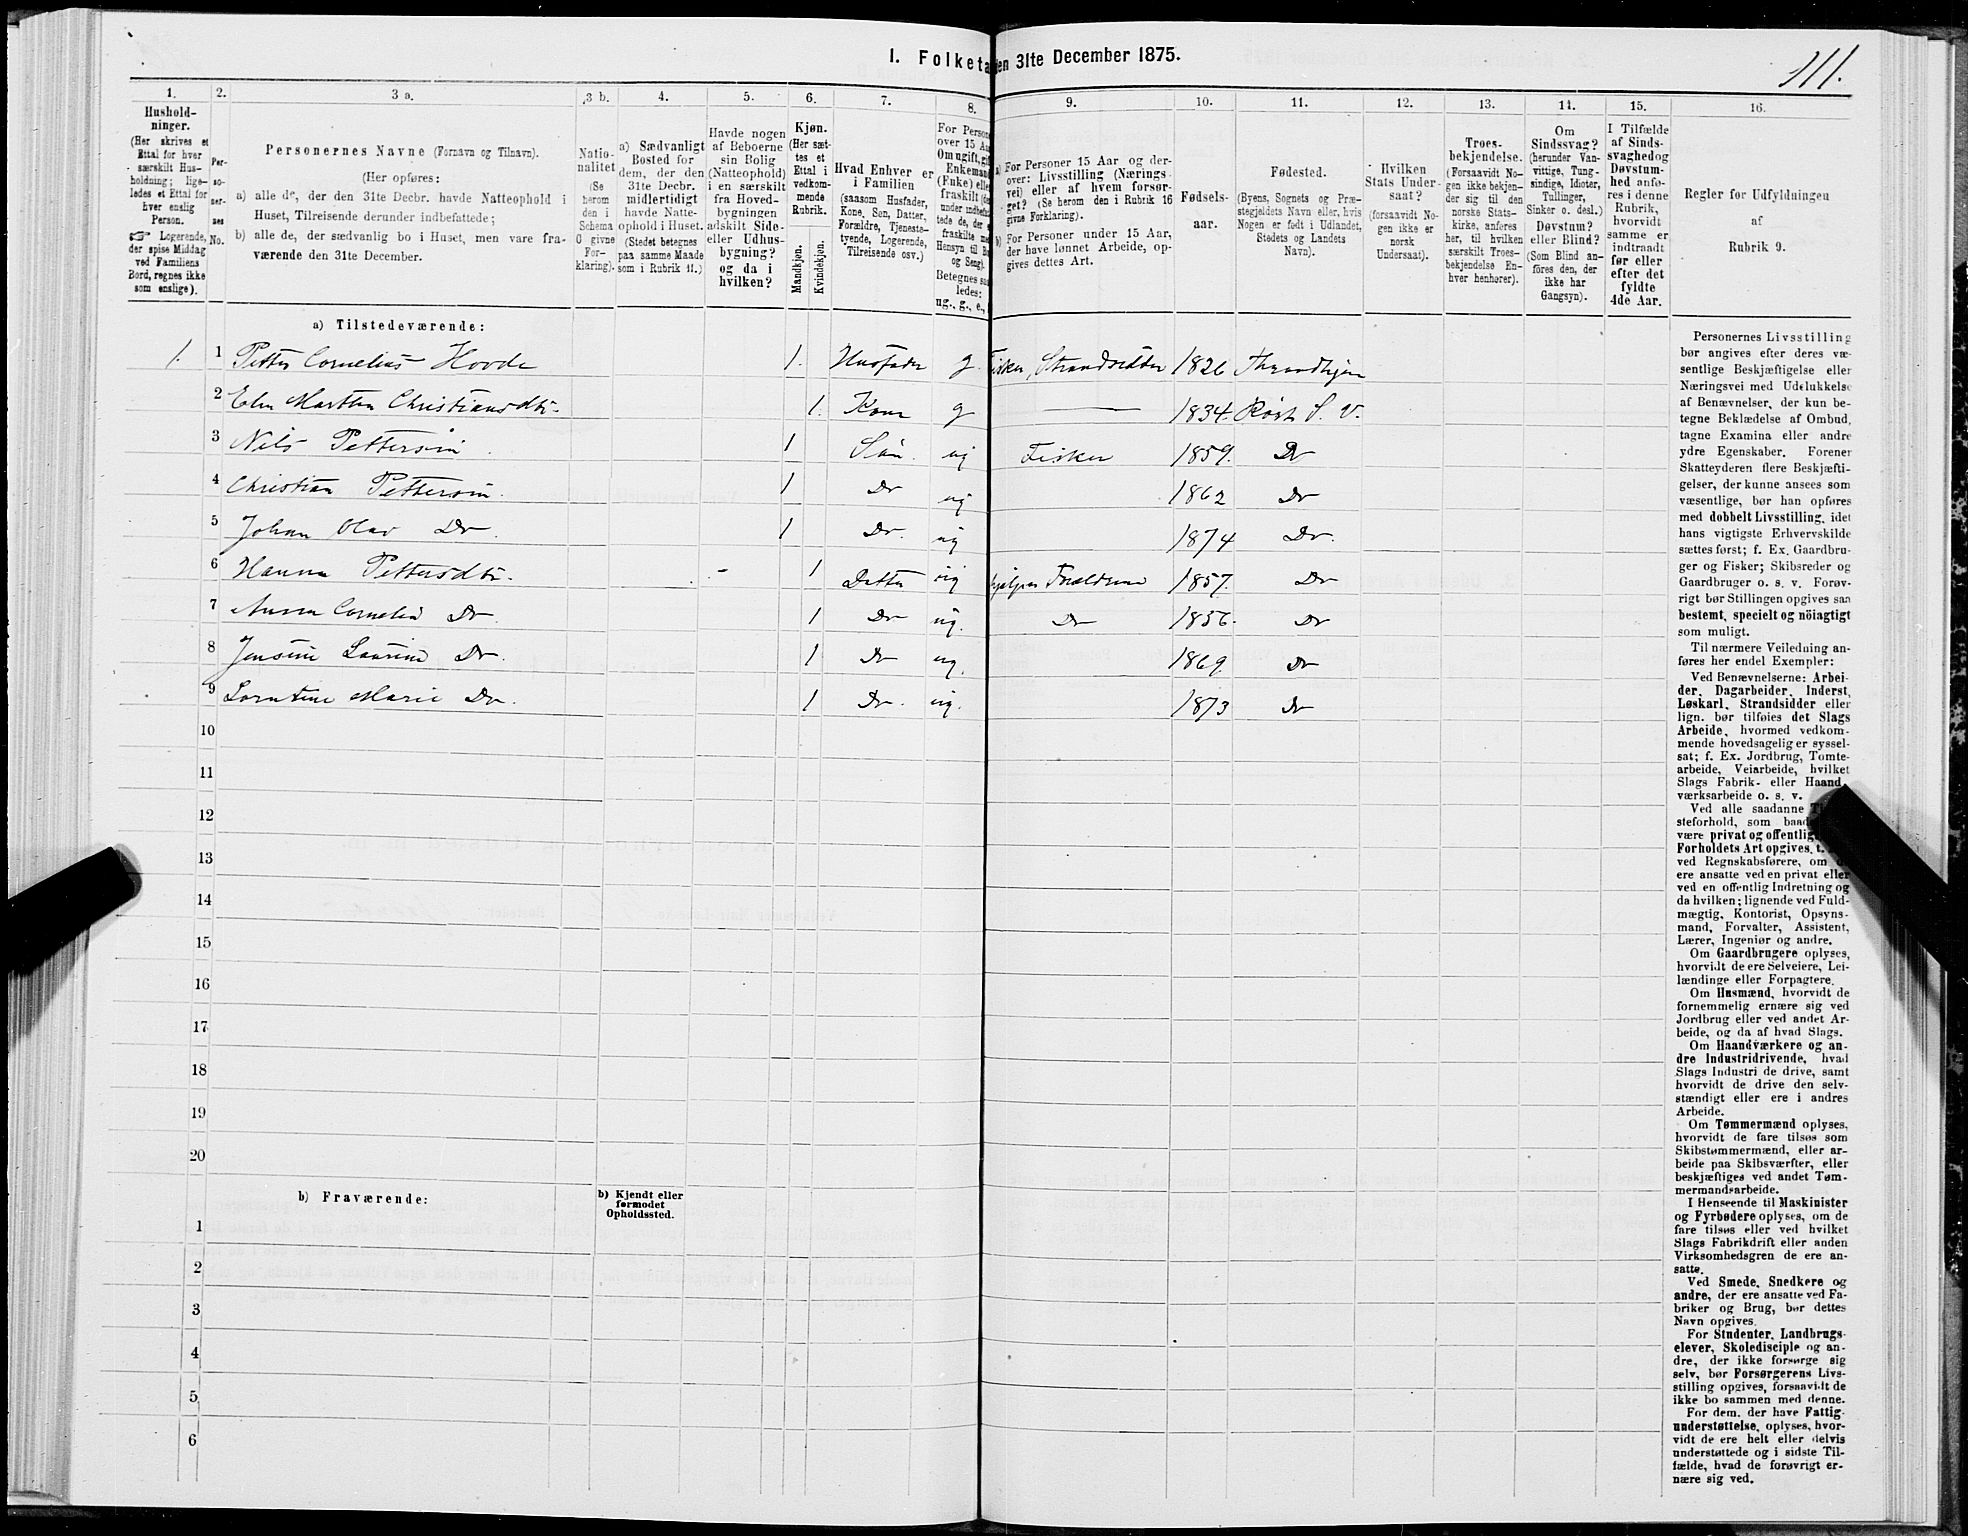 1. Folketa en 31te December 1875.
111.
1.
Hushold-
ninger.
(Her skrives et
Ettal for hver
særskilt Hus-
holdning; lige-
ledes et Ettal for
hver enslig
Person.
☞ Logerende,
der spise Middag
ved Familiens
Bord, regnes ikke
som enslige).
2.
Per-
so-
ner-
nes
No.
3 a.
Personernes Navne (Fornavn og Tilnavn).
(Her opføres:
a) alle de, der den 31te Decbr. havde Natteophold i
Huset, Tilreisende derunder indbefattede;
b) alle de, der sædvanlig bo i Huset, men vare fra-
værende den 31te December.
3 b.
Natio-
nalitet
(Se
herom
den i
Schema
G givne
For-
klaring).
4.
a) Sædvanligt
Bosted for
dem, der den
31te Decbr.
midlertidigt
havde Natte-
ophold i Huset.
(Stedet betegnes
paa samme Maade
som i Rubrik 11.)
5.
Havde nogen
af Beboerne
sin Bolig
(Natteophold)
i en særskilt
fra Hoved-
bygningen
adskilt Side-
eller Udhus-
bygning?
og da i
hvilken?
6.
Kjøn.
(Her sæt-
tes et
Ettal i
vedkom-
mende
Rubrik.
Mandkjøn.
Kvindekjøn.
7.
Hvad Enhver er
i Familien
(saasom Husfader,
Kone, Søn, Datter,
Forældre, Tjeneste-
tyende, Logerende,
Tilreisende osv.)
8.
For Person
over 15 Aar
Om ugift, gift
Enkemand
(Enke) elle
fraskilt
under indbefat
tede de, der
fraskilte
Hensyn til
og Seng).
Betegnes saa
ledes:
ug., g., e.,
9.
a) For Personer 15 Aar og der-
over: Livsstilling (Nærings-
vei) eller af hvem forsør-
get? (Se herom den i Rubrik 16
givne Forklaring).
b) For Personer under 15 Aar,
der have lønnet Arbeide, op-
gives dettes Art.
10.
Fødsels-
aar.
11.
Fødested.
(Byens, Sognets og Præ-
stegjeldets Navn eller, hvis
Nogen er født i Udlandet,
Stedets og Landets
Navn).
12.
Hvilken
Stats Under-
saat?
(forsaavidt No-
gen ikke er
norsk
Undersaat).
13.
Troes-
bekjendelse.
(Forsaavidt No-
gen ikke bekjen-
der sig til den
norske Stats-
kirke, anføres
her, til hvilken
særskilt Troes-
bekjendelse En-
hver henhører).
14.
Om
Sindssvag?
(herunder Van-
vittige, Tung-
sindige, Idioter,
Tullinger,
Sinker o. desl.)
Døvstum?
eller Blind?
(Som Blind an-
føres den, der
ikke har
Gangsyn).
15.
I Tilfælde
af Sinds-
svaghed og
Døvstum-
hed anfø-
res i denne
Rubrik,
hvorvidt
samme er
indtraadt
før eller
efter det
fyldte
4de Aar.
16.
Regler for Udfyldningen
af
Rubrik 9.
a) Tilstedeværende:
1. 1 Petter Cornelius Hovde 1. Husfader g. Fisker, Strandsidder 1826 Throndhjem
2 Elen Marthea Christiansdtr. 1. Kone g — 1834. Røst S. V.
3 Nils Pettersen 1 Søn. ug Fisker 1859. Do
4 Christian Pettersen. 1 Do ug 1862 Do
5 Johan Olav Do. 1 Do. ug 1874 Do.
6 Hanna Pettersdtr. 1 Datter ug hjælper Forældrene 1857. Do
7 Anna Cornelia Do. 1 Do ug. Do 1856. Do
8 Jensine Laurine Do. 1 Do ug. 1869. Do
9 Lorntine Marie Do. 1 Do. ug. 1873 Do
10
11
12
13
14
15
16
17
18
19
20
b) Fraværende:
b) Kjendt eller
formodet
Opholdssted.
1
2
3
4
5
6
Personernes Livsstilling
bør angives efter deres væ-
sentlige Beskjæftigelse eller
Næringsvei med Udelukkelse
af Benævnelser, der kun be-
tegne Beklædelse af Ombud,
tagne Examina eller andre
ydre Egenskaber. Forener
Skatteyderen flere Beskjæfti-
gelser, der kunne ansees som
væsentlige, bør han opføres
med dobbelt Livsstilling, idet
hans vigtigste Erhvervskilde
sættes først; f. Ex. Gaardbru-
ger og Fisker; Skibsreder og
Gaardbruger o. s. v. Forøv-
rigt bør Stillingen opgives saa
bestemt, specielt og nöiagtigt
som muligt.
Til nærmere Veiledning an-
føres her endel Exempler:
Ved Benævnelserne: Arbei-
der, Dagarbeider, Inderst,
Løskarl, Strandsidder eller
lign. bør tilføies det Slags
Arbeide, hvormed vedkom-
mende hovedsagelig er syssel-
sat; f. Ex. Jordbrug, Tomte-
arbeide, Veiarbeide, hvilket
Slags Fabrik- eller Haand-
værksarbeide o. s. v.
Ved alle saadanne
steforhold, som
være privat og offentlig
Forholdets Art opgives,
ved Regnskabsførere, om
ere ansatte ved en privat eller
ved en offentlig Indretning og
da hvilken; lignende ved Fuld-
mægtig, Kontorist, Opsyns-
mand, Forvalter, Assistent,
Lærer, Ingeniør og andre.
Om Gaardbrugere oplyses,
hvorvidt de ere Selveiere, Lei-
lændinge eller Forpagtere.
Om Husmænd, hvorvidt de
fornemmelig ernære sig ved
Jordbrug eller ved andet Ar-
beide, og da af hvad Slags.
Om Haandværkere og an-
dre Industridrivende, hvad
Slags Industri de drive, samt
hvorvidt de drive den selv-
stændigt eller ere i andres
Arbeide.
Om Tømmermænd oplyses,
hvorvidt de fare tilsøs som
Skibstømmermænd, eller ar-
beide paa Skibsværfter, eller
beskjæftiges ved andet Tøm-
mermandsarbeide.
I Henseende til Maskinister
og Fyrbødere oplyses, om de
fare tilsøs eller ved hvilket
Slags Fabrikdrift eller anden
Virksomhedsgren de ere an-
satte.
Ved Smede, Snedkere og
andre, der ere ansatte ved Fa-
briker og Brug, bør dettes
Navn opgives.
For Studenter, Landbrugs-
elever, Skoledisciple og an-
dre, der ikke forsørge sig
selv, bør Forsørgerens Livs-
stilling opgives, forsaavidt de
ikke bo sammen med denne.
For dem, der have Fattig-
understøttelse, oplyses, hvor-
vidt de ere helt eller delvis
understøttede og i sidste Til-
fælde, hvad de forøvrigt er-
nære sig ved.